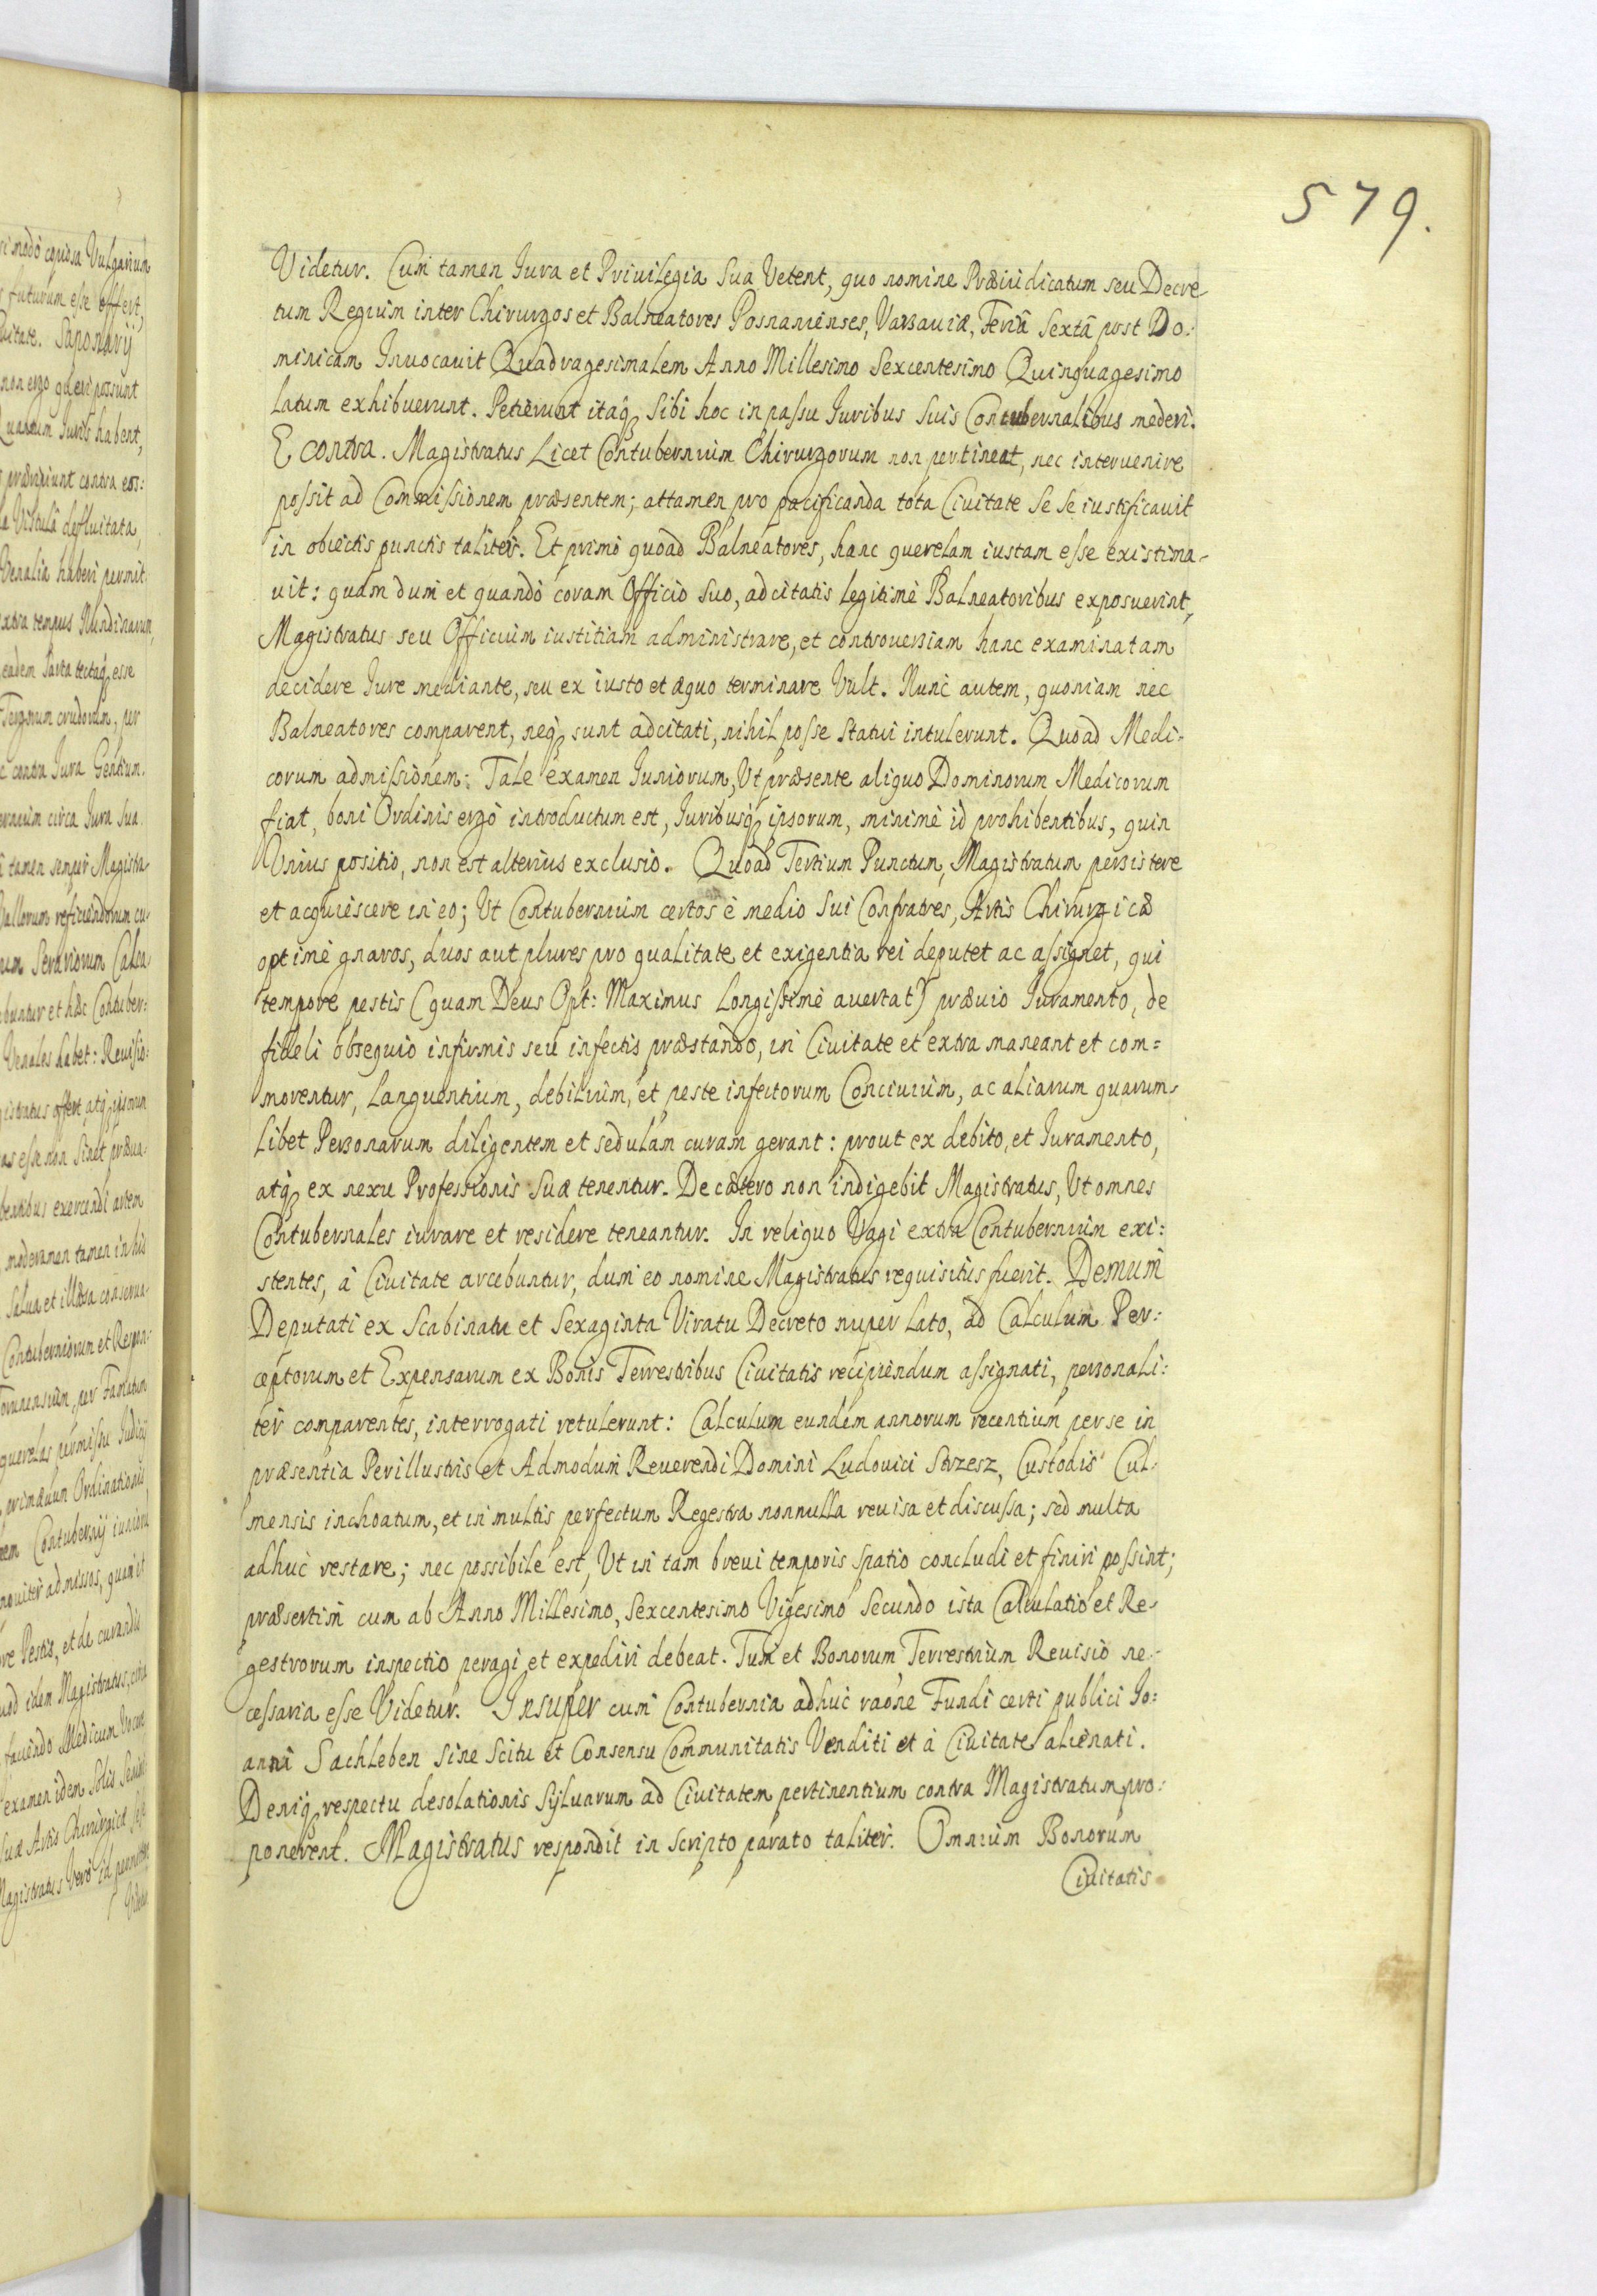 579.
Videtur. Cum tamen Iura et Priuilegia Sua Vetent, quo nomine Præiudicatum seu Decre-
tum Regium inter Chirurgos et Balneatores Posnanienses, Varsauiæ, Feriâ Sextâ post Do:
minicam Inuocauit Quadragesimalem Anno Millesimo Sexcentesimo Quinquagesimo
latum exhibuerunt. Petierunt itaq́ Sibi hoc in passu Iuribus Suis Contubernalibus mederi.
E contra. Magistratus Licet Contubernium Chirurgorum non pertineat, nec interuenire
possit ad Commissionem præsentem; attamen pro pacificanda tota Ciuitate Se se iustificauit
in obiectis punctis taliter. Et primò quoad Balneatores, hanc querelam iustam esse existima-
uit: quam dum et quandò coram Officio Suo, adcitatis legitimè Balneatoribus exposuerint,
Magistratus seu Officium iustitiam administrare, et controuersiam hanc examinatam
decidere Iure mediante, seu ex iusto et æquo terminare Vult. Nunc autem, quoniam nec
Balneatores comparent, neq́ sunt adcitati, nihil posse Statui intulerunt. Quoad Medi-
corum admissionem: Tale examen Iuniorum, Vt præsente aliquo Dominorum Medicorum
fiat, boni Ordinis ergò introductum est, Iuribusq́ ipsorum, minimè id prohibentibus, quin
Vnius positio, non est alterius exclusio. Quoad Tertium Punctum, Magistratum persistere
et acquiescere in eo; Vt Contubernium certos è medio Sui Confratres, Artis Chirurgicæ
optimè gnaros, duos aut plures pro qualitate et exigentia rei deputet ac assignet, qui
tempore pestis (quam Deus Opt: Maximus longissimè auertat) præuio Iuramento, de
fideli obsequio infirmis seu infectis præstando, in Ciuitate et extra maneant et com=
morentur, languentium, debilium, et peste infectorum Conciuium, ac aliarum quarum-
libet Personarum diligentem et sedulam curam gerant: prout ex debito, et Iuramento,
atq́ ex nexu Professionis Suæ tenentur. De cætero non indigebit Magistratus, Vt omnes
Contubernales iurare et residere teneantur. In reliquo Vagi extra Contubernium exi:
stentes, à Ciuitate arcebuntur, dum eo nomine Magistratus requisitus fuerit. Demum
Deputati ex Scabinatu et Sexaginta Viratu Decreto nuper lato, ad Calculum Per:
ceptorum et Expensarum ex Bonis Terrestribus Ciuitatis recipiendum assignati, personali:
ter comparentes, interrogati retulerunt: Calculum eundem annorum recentium per se in
præsentia Perillustris et Admodum Reuerendi Domini Ludouici Strzesz, Custodis Cul-
mensis inchoatum, et in multis perfectum Regestra nonnulla reuisa et discussa; sed multa
adhuc restare; nec possibile est, Vt in tam breui temporis spatio concludi et finiri possint;
præsertim cum ab Anno Millesimo, Sexcentesimo Vigesimo Secundo ista Calculatio et Re-
gestrorum inspectio peragi et expediri debeat. Tum et Bonorum Terrestrium Reuisio ne-
cessaria esse Videtur. Insuper cum Contubernia adhuc raõne Fundi certi publici Io:
anni Sachleben Sine Scitu et Consensu Communitatis Venditi et à Ciuitate alienati.
Deniq́ respectu desolationis Syluarum ad Ciuitatem pertinentium contra Magistratum pro:
ponerent. Magistratus respondit in Scripto parato taliter. Omnium Bonorum
Ciuitatis